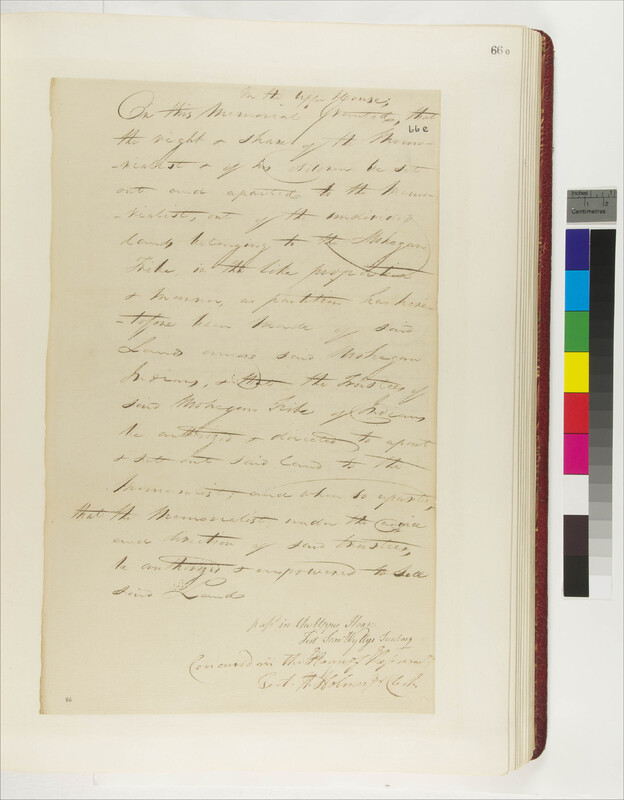 66 o
In the Upper House,
On this Memorial Granted, that
66 e
the right & share of the Memo-
-rialist & of his be set
out and aparted to the Memo-
-rialist, out of the undivided
Lands belonging to the Mohegan
Tribe, in the like proportion
& manner, as partition has here-
-tofore been made of said
Lands among said Mohegan
Indians, & that the Trustees of
said Mohegan Tribe of Indians
be authorized & directed to apart
& sett out said Land to the
Memorialist, and when so aparted,
that the Memorialist under the
and direction of said trustees,
be authorized & empowered to sell
said Lands
pass'd in the Upper House
Test Sam Wyllys Secretary
Concurred in the House of Represent
Test Clerk
66
Inches
1
Centimetres
1 2